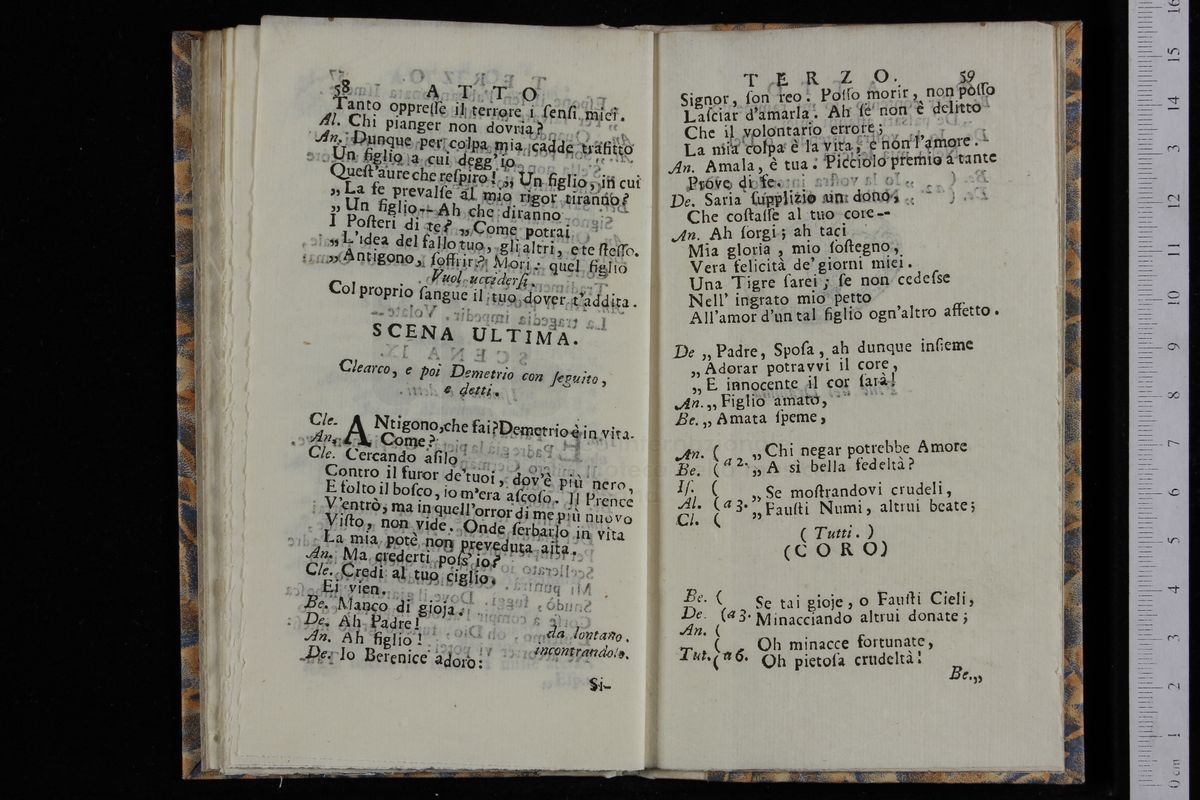 58 ATTO
Tanto oppresse il terrore i sensi miei.
Al. Chi pianger non dovria?
An. Dunque per colpa mia cadde trafitto
Un figlio a cui degg'io
Quest'aure che respiro! „ Un figlio, in cui
„ La fe prevalse al mio rigor tiranno?
„ Un figlio -- Ah che diranno
I Posteri di te? „ Come potrai
„ L'idea del fallo tuo, gli altri, e te stesso.
„ Antigono, soffrir? Mori: quel figlio
Vuol uccidersi.
Col proprio sangue il tuo dover t'addita.
SCENA ULTIMA.
Clearco, e poi Demetrio con seguito,
e detti.
Cle. ANtigono, che fai? Demetrio è in vita.
An. Come?
Cle. Cercando asilo
Contro il furor de'tuoi, dov'è più nero,
E folto il bosco, io m'era ascoso. Il Prence
V'entrò, ma in quell'orror di me più nuovo
Visto, non vide. Onde serbarlo in vita
La mia potè non preveduta aita.
An. Ma crederti poss'io?
Cle. Credi al tuo ciglio.
Ei vien.
Be. Manco di gioja.
De. Ah Padre! da lontano.
An. Ah figlio! incontrandolo.
De. Io Berenice adoro:
Si-
TERZO. 59
Signor, son reo. Posso morir, non posso
Lasciar d'amarla. Ah se non è delitto
Che il volontario errore;
La mia colpa è la vita; e non l'amore.
An. Amala, è tua. Picciolo premio a tante
Prove di fe.
De. Saria supplizio un dono,
Che costasse al tuo core --
An. Ah sorgi; ah taci
Mia gloria, mio sostegno,
Vera felicità de' giorni miei.
Una Tigre sarei; se non cedesse
Nell' ingrato mio petto
All'amor d'un tal figlio ogn'altro affetto.
De „ Padre, Sposa, ah dunque insieme
„ Adorar potravvi il core,
„ E innocente il cor sarà!
An. „ Figlio amato,
Be. „ Amata speme,
An. ( „ Chi negar potrebbe Amore
Be. ( a 2. „ A sì bella fedeltà?
Is. ( „ Se mostrandovi crudeli,
Al. ( a 3. „ Fausti Numi, altrui beate;
Cl. (
( Tutti. )
( CORO )
Be. ( Se tai gioje, o Fausti Cieli,
De. ( a 3. Minacciando altrui donate;
An. (
( Oh minacce fortunate,
Tut. ( a 6. Oh pietosa crudeltà!
Be. „